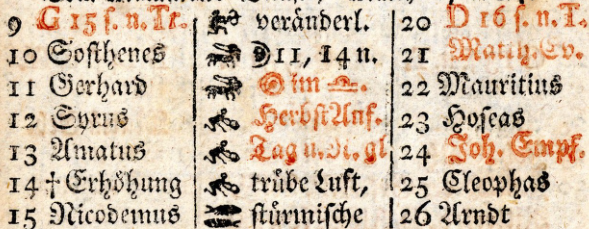 9 G 15 f. n. Tr. veränderl. 20 D 16 f. n. T.
10 Sosthenes ☽11, 14 n. 21 Matth. Ev.
11 Gerhard ☉ im ♎. 22 Mauritius
12 Syrus Herbst Anf. 23 Hoseas
13 Amatus Tag u. N. gl 24 Joh. Empf.
14 † Erhöhung trübe Luft, 25 Cleophas
15 Nicodemus stürmische 26 Arndt